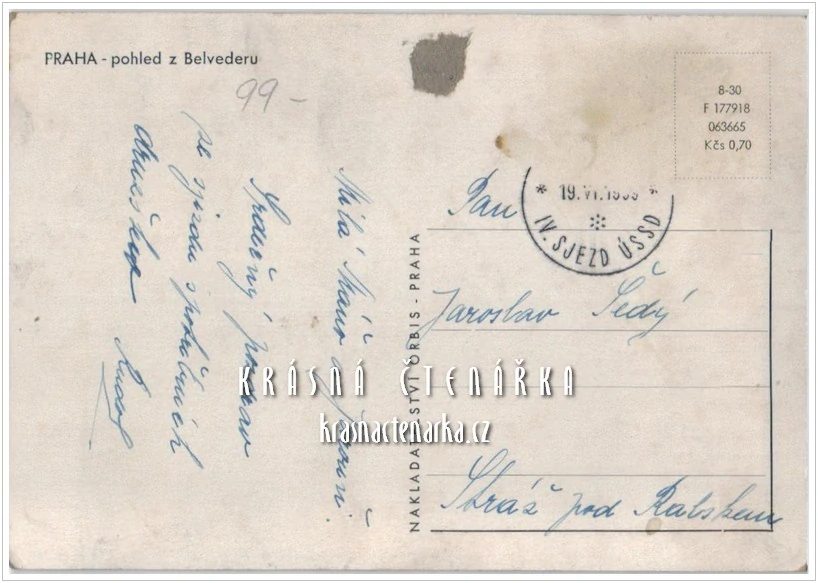 PRAHA - pohled z Belvederu
99-
Milá Máňo a Jarouši.
Srdečný pozdav
ze sjezdu spotřebních
družstev
Rudof
NAKLADATELSTVÍ ORBIS - PRAHA
8-30
F 177918
063665
Kčs 0,70
* 19.VI.1959 *
IV. SJEZD ÚSSD
Pan
Jaroslav Šedý
Stráž pod Ralskem
KRÁSNÁ ČTENÁŘKA
krasnactenarka.cz